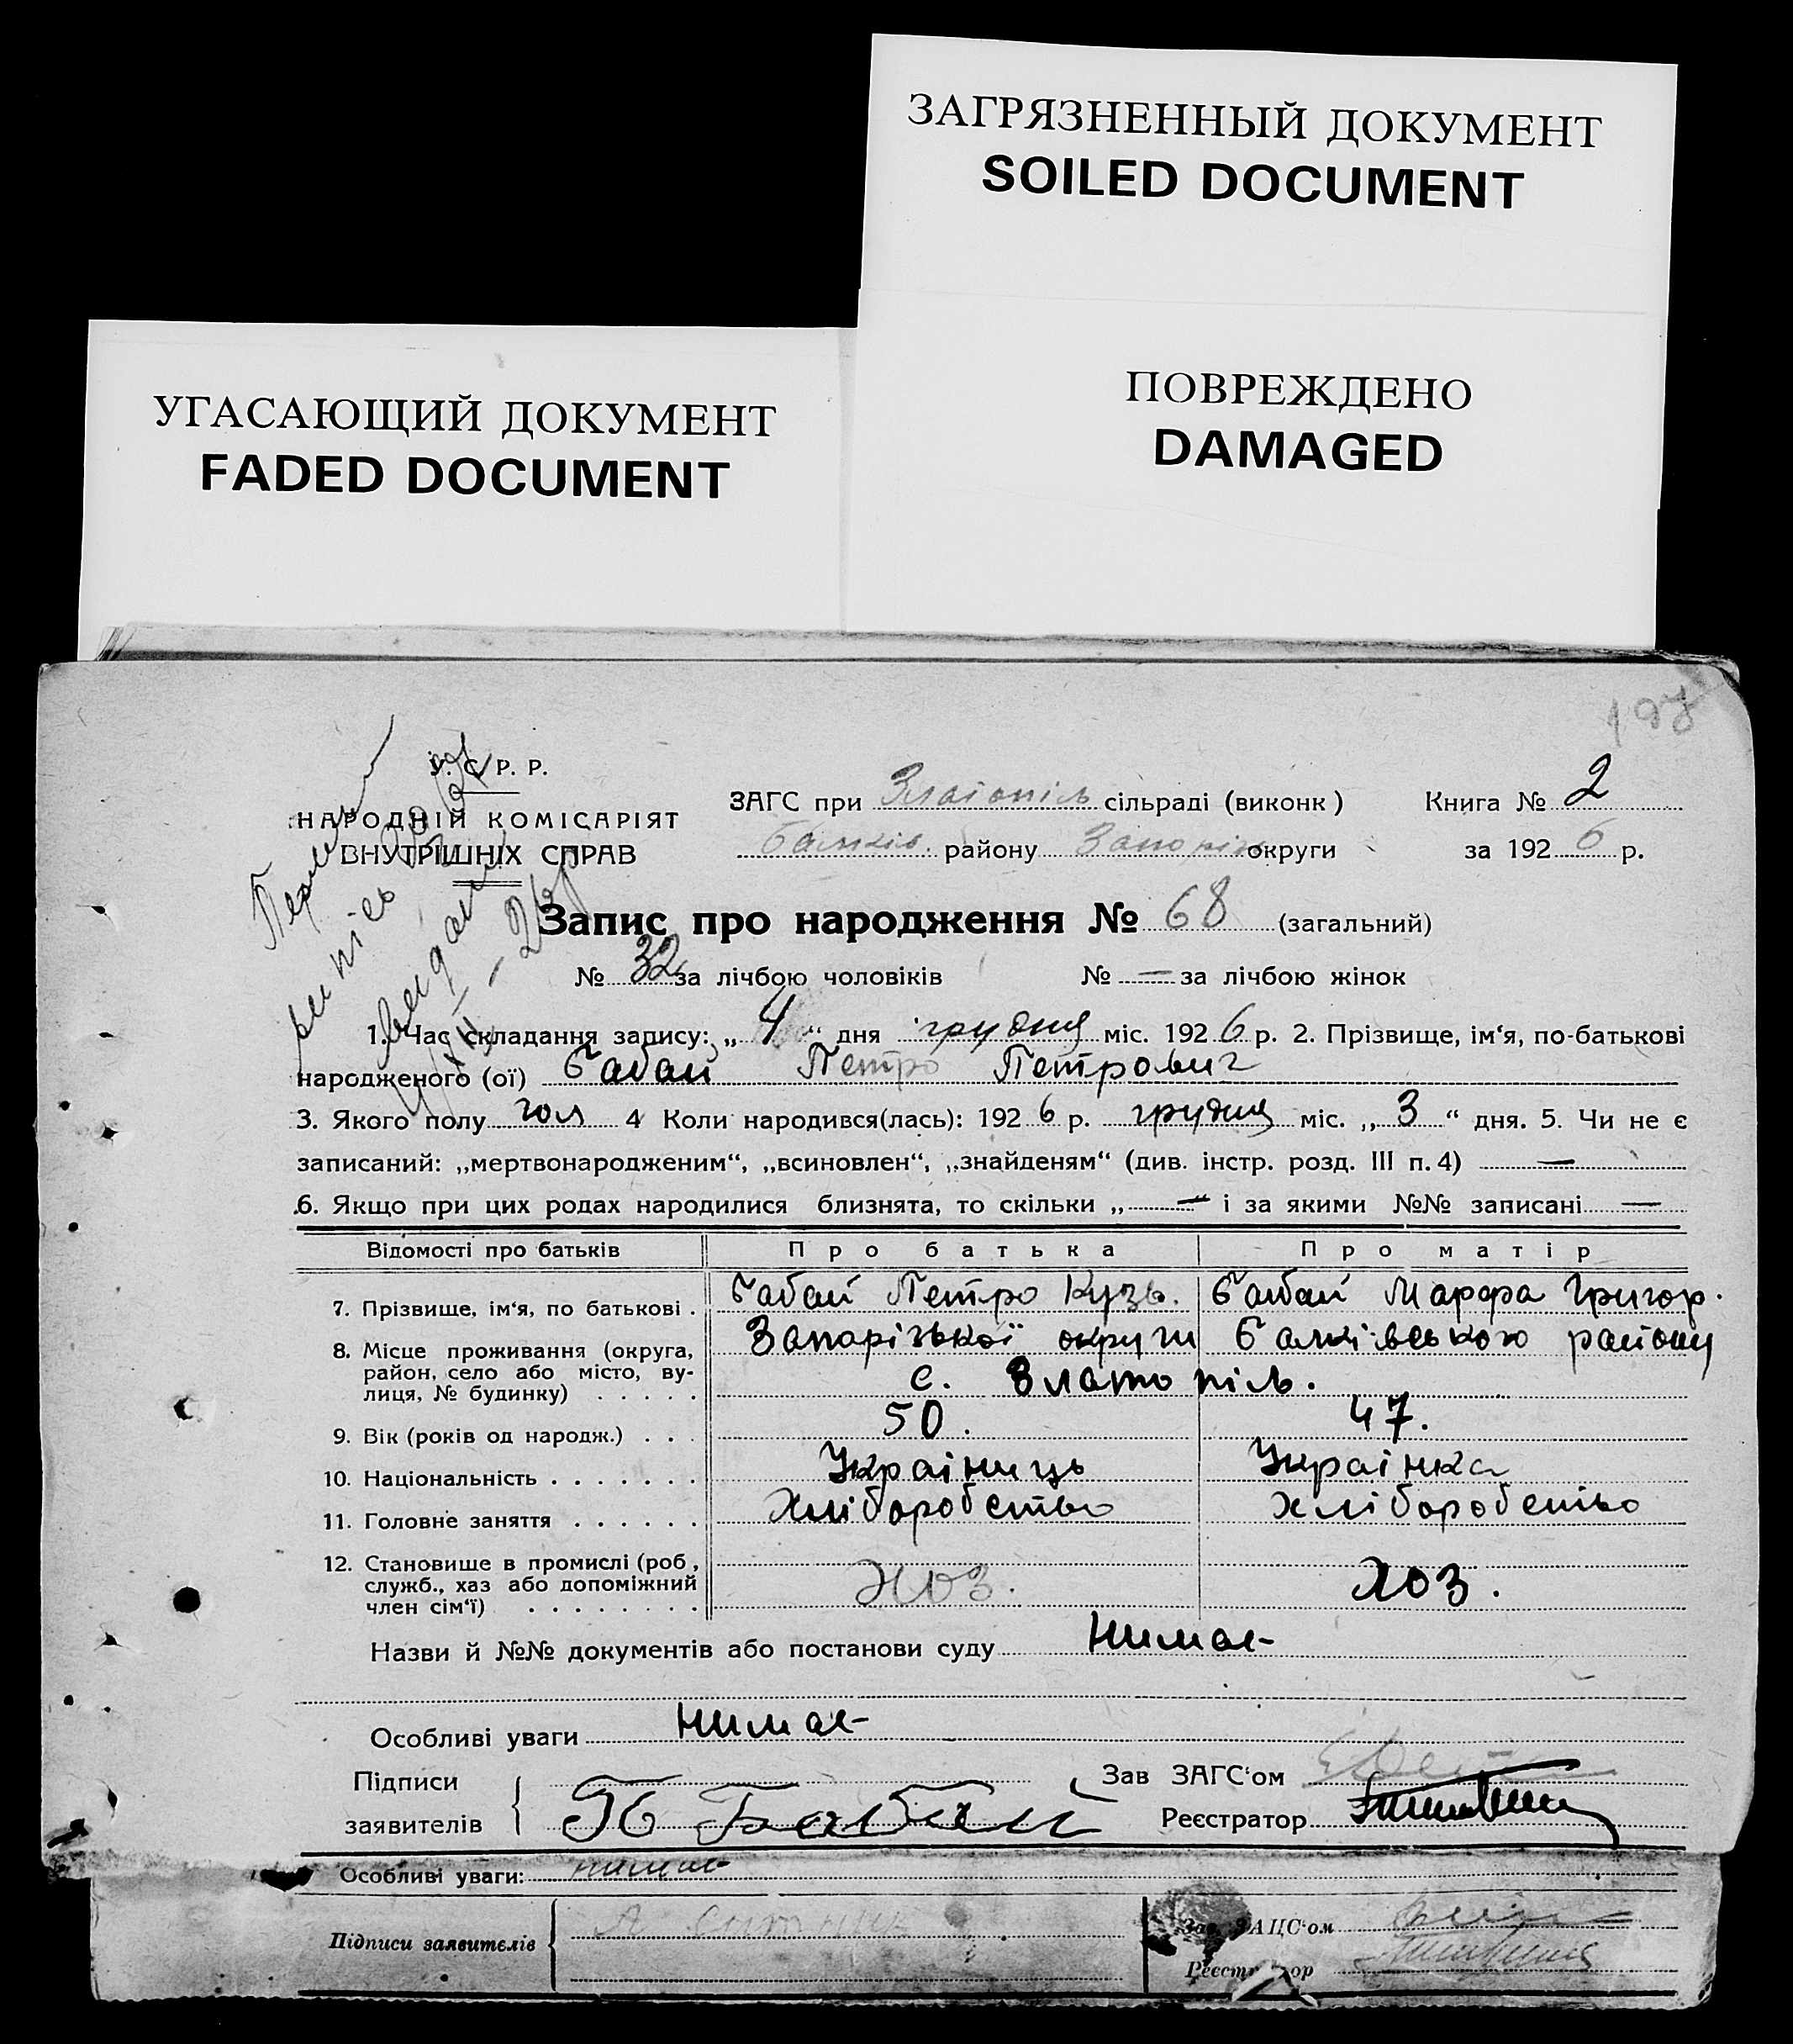 ЗАГРЯЗНЕННЫЙ ДОКУМЕНТ
SOILED DOCUMENT
УГАСАЮЩИЙ ДОКУМЕНТ
FADED DOCUMENT
ПОВРЕЖДЕНО
DAMAGED
У. С. Р. Р.
НАРОДНІЙ КОМІСАРІЯТ
ВНУТРІШНІХ СПРАВ
ЗАГС при Златопіль сільраді (виконк) Книга № 2
Балків. району Запоріз округи за 192 6 р.
Запис про народження № 68 (загальний)
№ 32 за лічбою чоловіків № — за лічбою жінок
1. Час складання запису: „ 4 “ дня грудня міс. 192 6 р. 2. Прізвище, ім‘я, по-батькові
народженого (ої) Бабай Петро Петрович
3. Якого полу чол 4 Коли народився(лась): 192 6 р. грудня міс. „ 3 “ дня. 5. Чи не є
записаний: „мертвонародженим“, „всиновлен“, „знайденям“ (див. інстр. розд. III п. 4) —
6. Якщо при цих родах народилися близнята, то скільки „ — “ і за якими №№ записані —
Відомості про батьків Про батька Про матір
7. Прізвище, ім‘я, по батькові . Бабай Петро Кузь. Бабай Марфа Григор.
8. Місце проживання (округа, Запорізької округи Балківського району
район, село або місто, ву-
лиця, № будинку) . . . . . с. Златопіль.
9. Вік (років од народж.) . . . 50. 47.
10. Національність . . . . . . . Україниць Українка
11. Головне заняття . . . . . . Хліборобство хліборобство
12. Становище в промислі (роб.,
служб., хаз або допоміжний хоз. хоз.
член сім‘ї) . . . . . . . .
Назви й №№ документів або постанови суду Нимає
Особливі уваги Нимає
Підписи Зав ЗАГС‘ом
заявителів П Бабай Реєстратор
Особливі уваги: нимає
Підписи заявителів Зав. ЗАЦС‘ом
Реєстратор